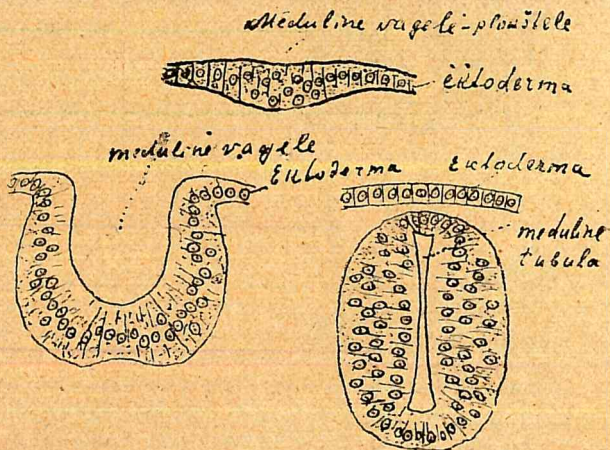 Meduline vagelė-plouštele
ektoderma
meduline vagele
Ektoderma
Ektoderma
meduline
tubula